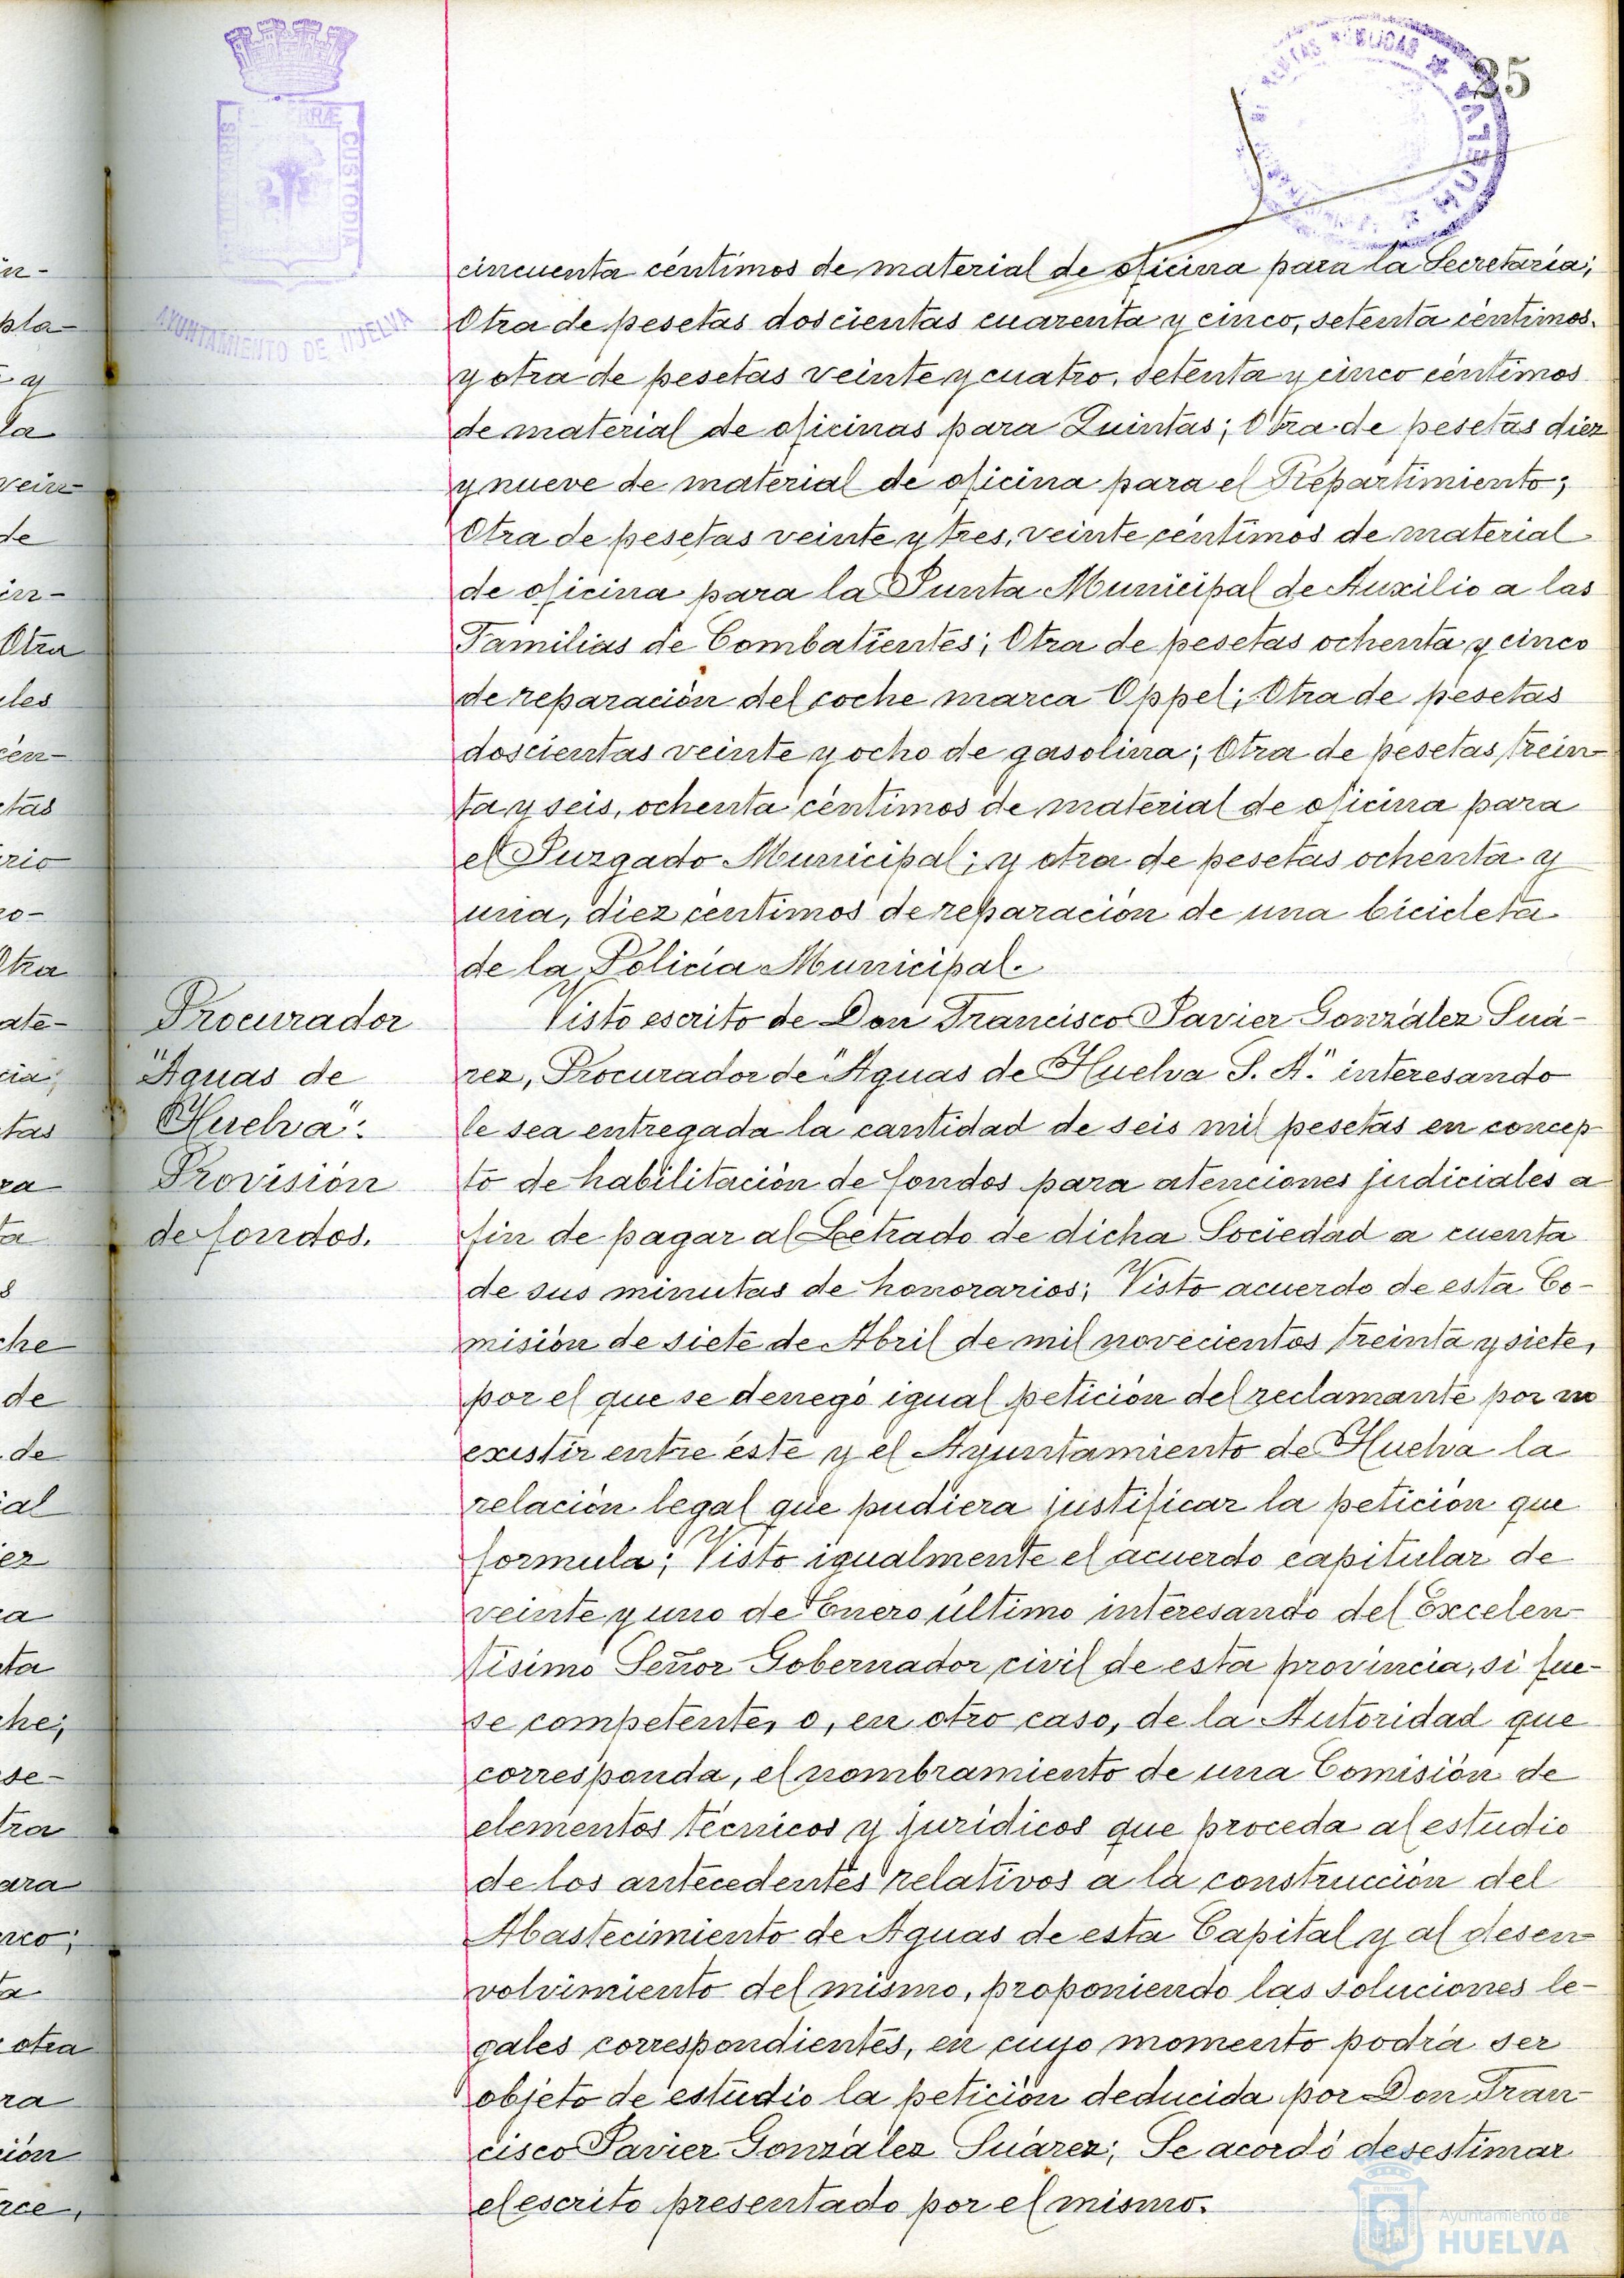 35
AYUNTAMIENTO DE HUELVA
CUSTODIA
cincuenta céntimos de material de oficina para la Secretaría;
Otra de pesetas doscientas cuarenta y cinco, setenta céntimos.
y otra de pesetas veinte y cuatro, setenta y cinco céntimos
de material de oficinas para Quintas; Otra de pesetas diez
y nueve de material de oficina para el Repartimiento;
Otra de pesetas veinte y tres, veinte céntimos de material
de oficina para la Junta Municipal de Auxilio a las
Familias de Combatientes; Otra de pesetas ochenta y cinco
de reparación del coche marca Oppel; Otra de pesetas
doscientas veinte y ocho de gasolina; Otra de pesetas trein-
ta y seis, ochenta céntimos de material de oficina para
el Juzgado Municipal; y otra de pesetas ochenta y
una, diez céntimos de reparación de una bicicleta
de la Policía Municipal.
Procurador
"Aguas de
Huelva":
Provisión
de fondos.
Visto escrito de Don Francisco Javier González Suá-
rez, Procurador de "Aguas de Huelva S. A." interesando
le sea entregada la cantidad de seis mil pesetas en concep-
to de habilitación de fondos para atenciones judiciales a
fin de pagar al Letrado de dicha Sociedad a cuenta
de sus minutas de honorarios; Visto acuerdo de esta Co-
misión de siete de Abril de mil novecientos treinta y siete,
por el que se denegó igual petición del reclamante por no
existir entre éste y el Ayuntamiento de Huelva la
relación legal que pudiera justificar la petición que
formula; Visto igualmente el acuerdo capitular de
veinte y uno de Enero último interesando del Excelen-
tísimo Señor Gobernador civil de esta provincia, si fue-
se competente, o, en otro caso, de la Autoridad que
corresponda, el nombramiento de una Comisión de
elementos técnicos y jurídicos que proceda al estudio
de los antecedentes relativos a la construcción del
Abastecimiento de Aguas de esta Capital y al desen-
volvimiento del mismo, proponiendo las soluciones le-
gales correspondientes, en cuyo momento podrá ser
objeto de estudio la petición deducida por Don Fran-
cisco Javier González Suárez; Se acordó desestimar
el escrito presentado por el mismo.
Ayuntamiento de
HUELVA